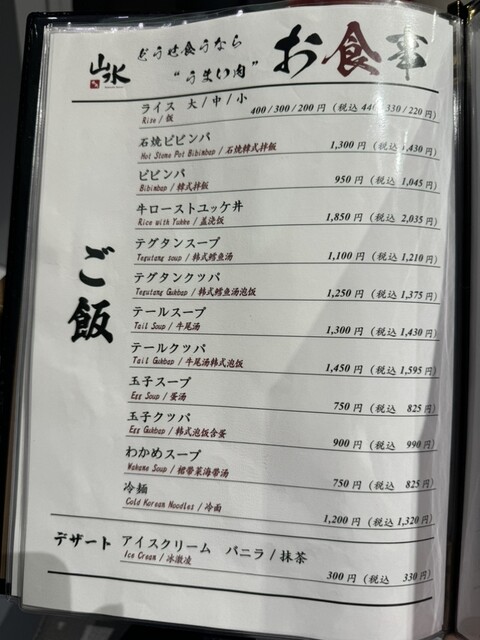 山水
どうせ食うなら
“うまい肉”
お食事
ご飯
ライス 大/中/小
Rise / 飯
400/300/200円 (税込 440/330/220円)
石焼ビビンバ
Hot Stone Pot Bibimbap / 石焼韓式拌飯
1,300 円 (税込 1,430円)
ビビンバ
Bibimbap / 韓式拌飯
950 円 (税込 1,045円)
牛ローストユッケ丼
Rice with Yukke / 盖浇饭
1,850 円 (税込 2,035円)
テグタンスープ
Tegutang soup / 韩式鳕鱼汤
1,100 円 (税込 1,210円)
テグタンクッパ
Tegutang Gukbap / 韩式鳕鱼汤泡饭
1,250 円 (税込 1,375円)
テールスープ
Tail Soup / 牛尾汤
1,300 円 (税込 1,430円)
テールクッパ
Tail Gukbap / 牛尾汤韩式泡饭
1,450 円 (税込 1,595円)
玉子スープ
Egg Soup / 蛋汤
750 円 (税込 825円)
玉子クッパ
Egg Gukbap / 韩式泡饭含蛋
900 円 (税込 990円)
わかめスープ
Wakame Soup / 裙带菜海带汤
750 円 (税込 825円)
冷麺
Cold Korean Noodles / 冷面
1,200 円 (税込 1,320円)
デザート
アイスクリーム バニラ/抹茶
Ice Cream / 冰激凌
300 円 (税込 330円)